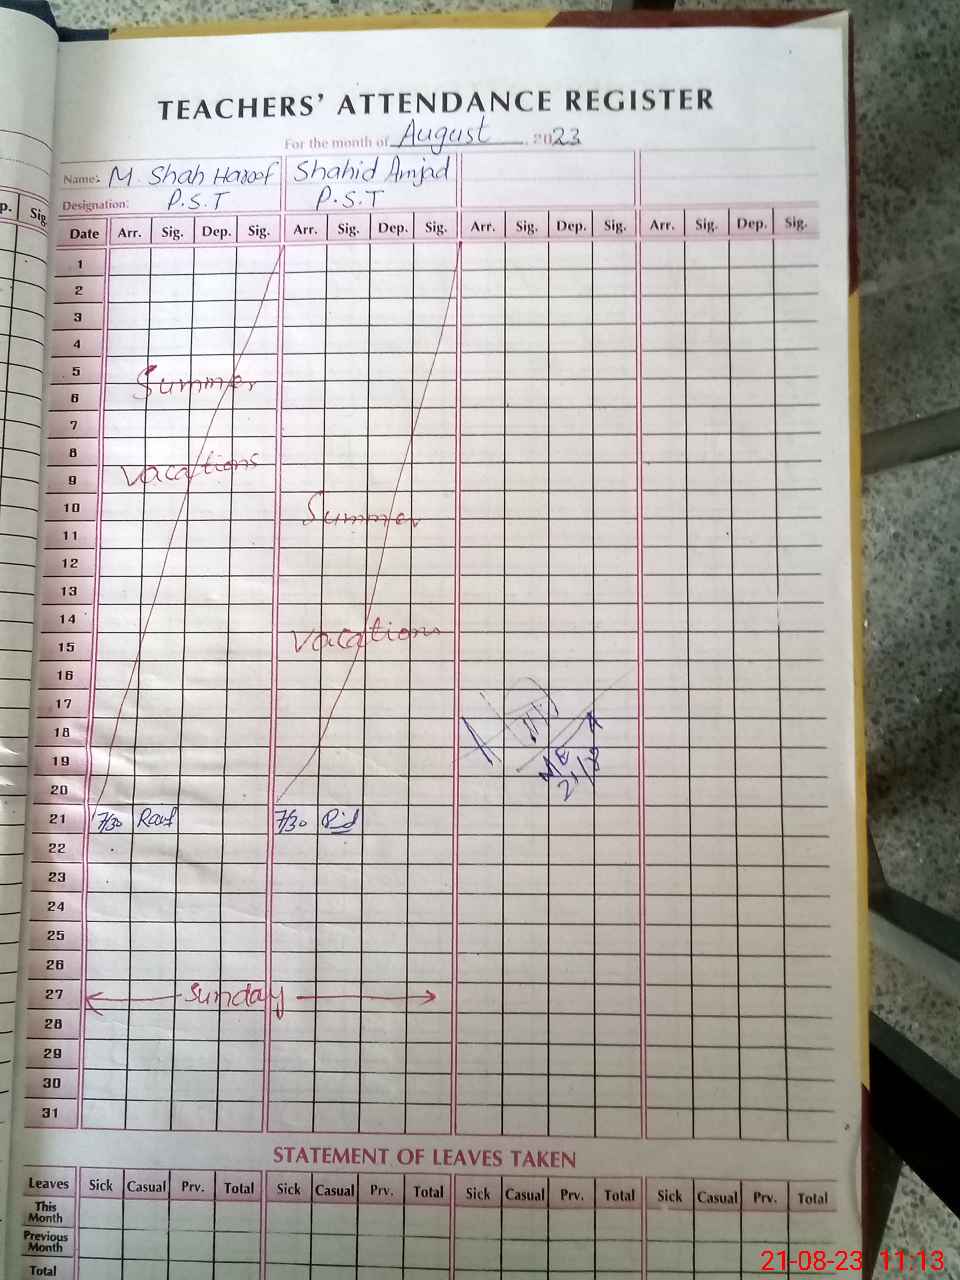 p. Sig.
TEACHERS' ATTENDANCE REGISTER
For the month of August 2023
Name: M. Shah Haroof Shahid Amjad
Designation: P.S.T P.S.T
Date Arr. Sig. Dep. Sig. Arr. Sig. Dep. Sig. Arr. Sig. Dep. Sig. Arr. Sig. Dep. Sig.
1
2
3
4
5
Summer
6
7
8
vacations
9
10
Summer
11
12
13
14
vacations
15
16
17
18
19
20
21 7/30 Rauf 7/30
22
23
24
25
26
27 Sunday
28
29
30
31
STATEMENT OF LEAVES TAKEN
Leaves Sick Casual Prv. Total Sick Casual Prv. Total Sick Casual Prv. Total Sick Casual Prv. Total
This Month
Previous Month
Total
21-08-23 11:13